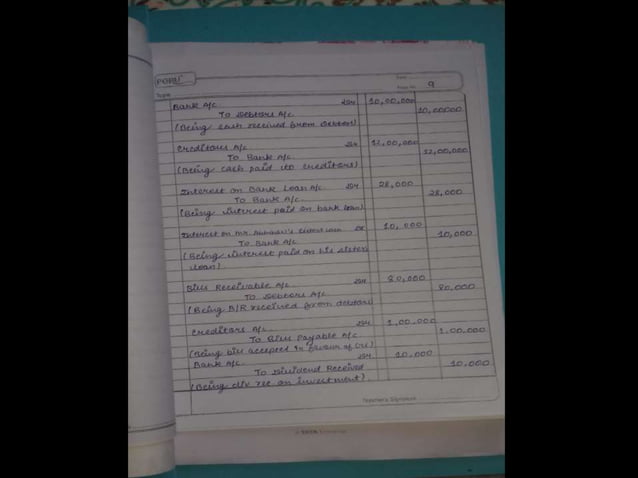 Date
Page No. 9
Topic
Bank A/c Dr 10,00,000
To Debtors A/c 10,00000
(Being cash received from Debtors)
Creditors A/c Dr 12,00,000
To Bank A/c 12,00,000
(Being cash paid to creditors)
Interest on Bank Loan A/c Dr 28,000
To Bank A/c 28,000
(Being interest paid on bank loan)
Interest on Mr. sister's loan Dr 10,000
To Bank A/c 10,000
(Being interest paid on his sister
loan)
Bills Receivable A/c Dr 80,000
To Debtors A/c 80,000
(Being B/R received from debtors)
Creditors A/c Dr 1,00,000
To Bills Payable A/c 1,00,000
(Being bill accepted in favour of Cr.)
Bank A/c Dr 10,000
To Dividend Received 10,000
(Being div rec on investment)
Teacher's Signature